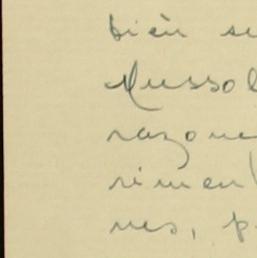 bien su
Mussol
razone
rimen
nes, p